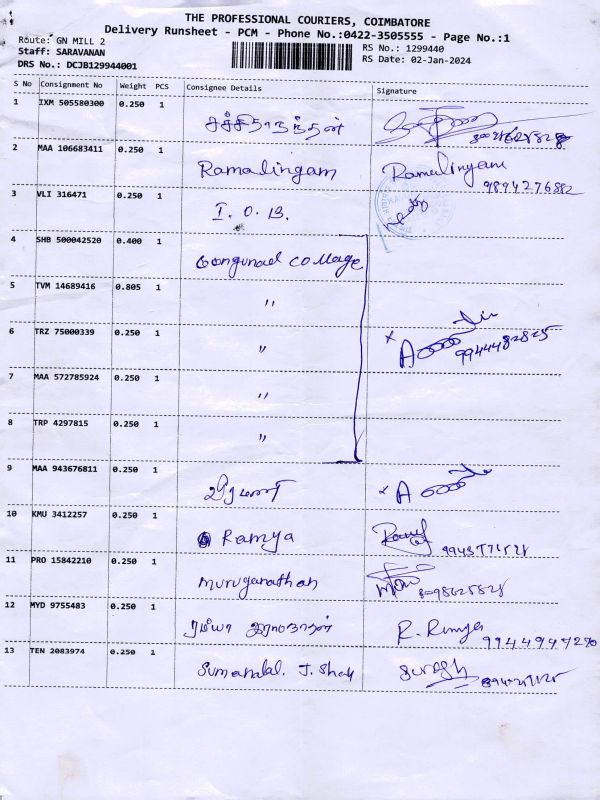 THE PROFESSIONAL COURIERS, COIMBATORE
Delivery Runsheet - PCM - Phone No.:0422-3505555 - Page No.:1
Route: GN MILL 2
Staff: SARAVANAN
DRS No.: DCJB129944001
RS No.: 1299440
RS Date: 02-Jan-2024
S No Consignment No Weight PCS Consignee Details Signature
1 IXM 505580300 0.250 1
2 MAA 106683411 0.250 1 Ramalingam Ramalingam
9894276882
3 VLI 316471 0.250 1 I. O. B.
4 SHB 500042520 0.400 1 Congunad College
5 TVM 14689416 0.805 1 "
6 TRZ 75000339 0.250 1 "
9944482825
7 MAA 572785924 0.250 1 "
8 TRP 4297815 0.250 1 "
9 MAA 943676811 0.250 1
10 KMU 3412257 0.250 1 Ramya
11 PRO 15842210 0.250 1 Muruganathan
12 MYD 9755483 0.250 1 ரம்யா R. Ramya
9944947270
13 TEN 2083974 0.250 1 Sumanalal. J. Shah Suresh